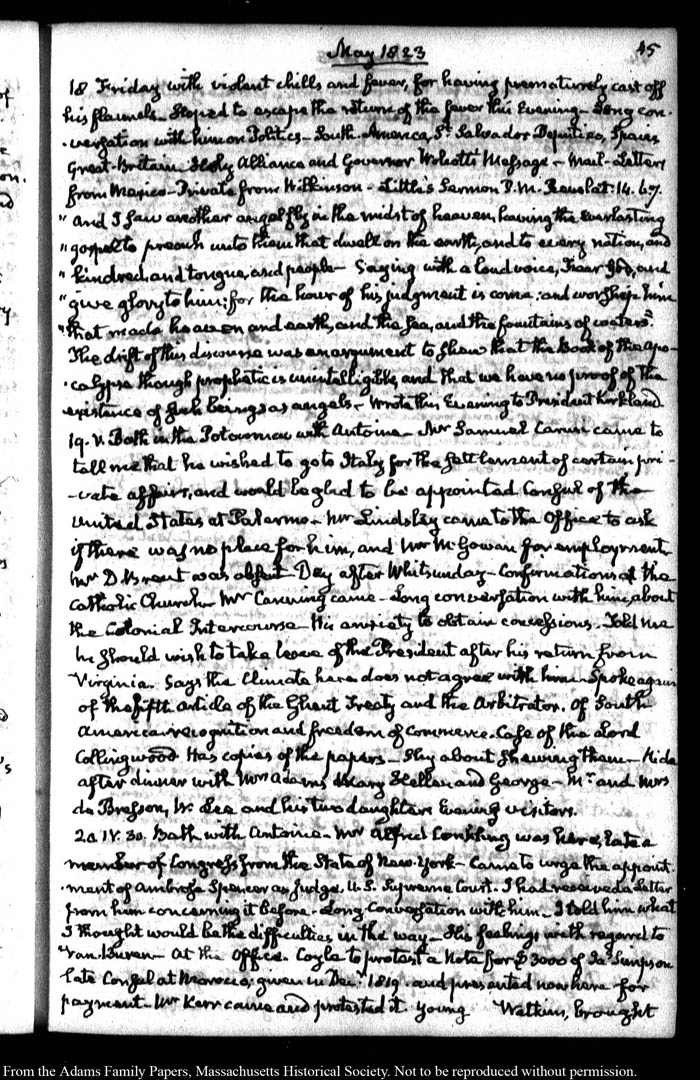 May 1823
45
18 Friday with violent chills and fever, for having prematurely cast off
his flannels. Sleped to escape the return of the fever this Evening. Long con-
-versation with him on Politics. South America, St. Salvador Deputies, Spain,
Great-Britain Holy Alliance and Governor Wolcott's Message. Mail-Letters
from Mexico. Private from Wilkinson. Little's Sermon P.M. Revelat: 14. 6.7.
"And I saw another angel fly in the midst of heaven, having the everlasting
"gospel to preach unto them that dwell on the earth, and to every nation, and
"kindred, and tongue, and people— Saying with a loud voice, Fear God, and
"give glory to him: for the hour of his judgment is come: and worship him
"that made heaven and earth, and the sea, and the fountains of waters."
The drift of this discourse was an argument to shew that the Book of the Apo-
-calypse though prophetic is unintelligible, and that we have no proof of the
existence of such beings as angels. Wrote this Evening to President Kirkland
19. V. Bath in the Potowmac with Antoine. Mr Samuel Larned came to
tell me that he wished to go to Italy for the settlement of certain pri-
-vate affairs, and would be glad to be appointed Consul of the
United States at Palermo. Mr Lindsley came to the Office to ask
if there was no place for him, and Mr McGowan for employment.
Mr D. Brent was absent. Day after Whitsunday. Confirmations at the
Catholic Church. Mr Canning came. Long conversation with him, about
the Colonial Intercourse. His anxiety to obtain concessions. Told me
he should wish to take leave of the President after his return from
Virginia. Says the Climate here does not agree with him. Spoke again
of the fifth article of the Ghent Treaty and the Arbitrator. Of South
American recognition and freedom of commerce. Case of the Lord
Collingwood Has copies of the papers. Shy about shewing them. Ride
after dinner with Mrs Adams Mary Hellen and George. Mr. and Mrs
de Bresson, W. Lee and his two daughters Evening visitors.
20 IV. 30. Bath with Antoine. Mr Alfred Conkling was here, late a
member of Congress from the State of New-York. Came to urge the appoint-
-ment of Ambrose Spencer as Judge, U.S. Supreme Court. I had received a Letter
from him concerning it before. Long Conversation with him. I told him what
I thought would be the difficulties in the way. His feelings with regard to
Van Buren. At the Office. Coyle to protest a Note for $3000 of Ja's Simpson
late Consul at Morocco, given in Decr 1819. and presented now here for
payment. Mr Kerr came and protested it. Young Watkins, brought
From the Adams Family Papers, Massachusetts Historical Society. Not to be reproduced without permission.